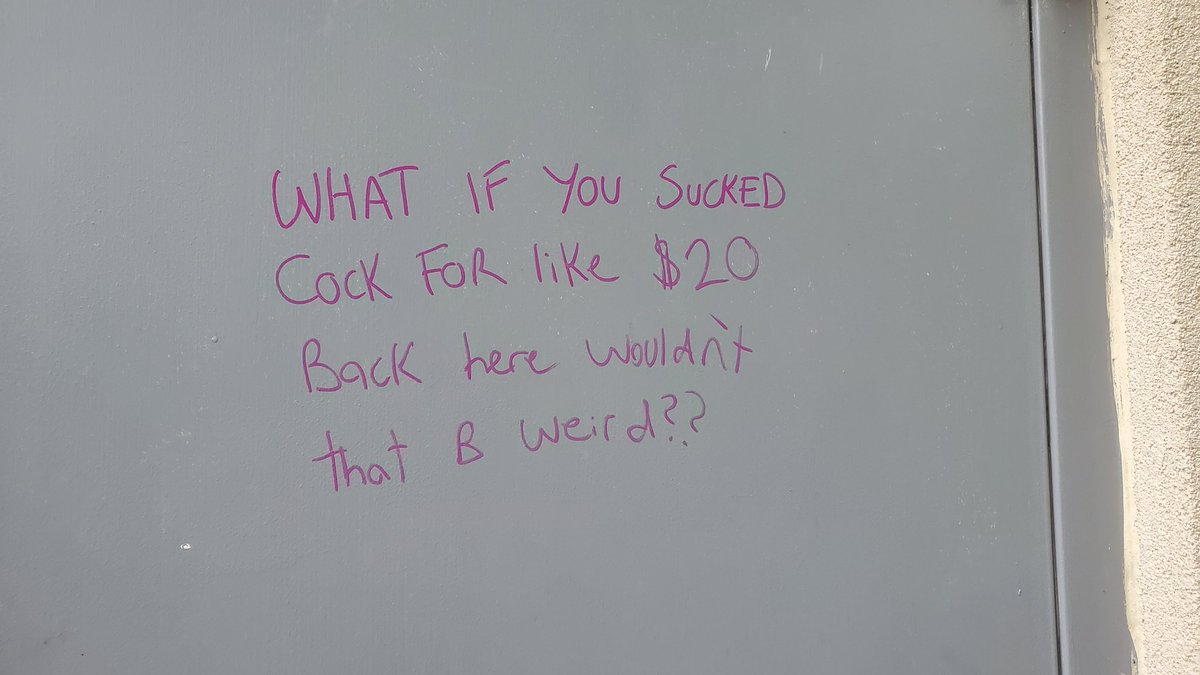 WHAT IF YOU SUCKED
COCK FOR like $20
Back here wouldn't
that B weird??